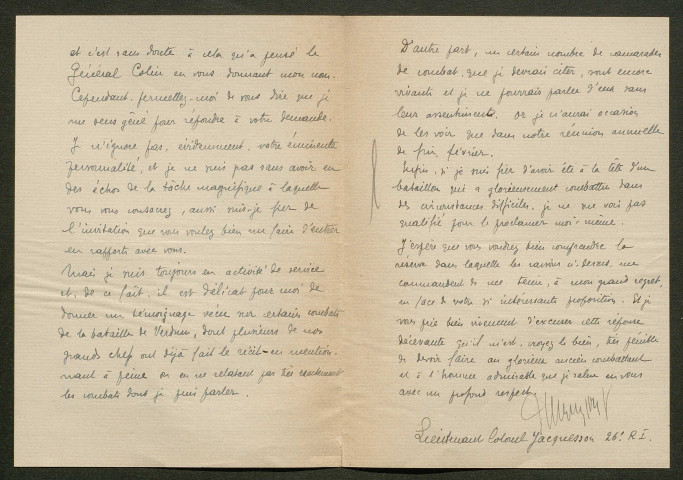 et c'est sans doute à cela qu'a pensé le
Général Colin en vous donnant mon nom.
Cependant, permettez-moi de vous dire que je
me sens gêné pour répondre à votre demande.
Je n'ignore pas, évidemment, votre éminente
personnalité, et je ne suis pas sans avoir eu
des échos de la tâche magnifique à laquelle
vous vous consacrez, aussi suis-je fier de
l'invitation que vous voulez bien me faire d'entrer
en rapports avec vous.
Mais je suis toujours en activité de service
et, de ce fait, il est délicat pour moi de
donner un témoignage vécu sur certains combats
de la bataille de Verdun, dont plusieurs de nos
grands chefs ont déjà fait le récit en mention-
nant à peine ou en ne relatant pas très exactement
les combats dont je puis parler.
D'autre part, un certain nombre de camarades
de combat, que je devrais citer, sont encore
vivants et je ne pourrais parler d'eux sans
leur assentiment. Or je n'aurai occasion
de les voir que dans notre réunion annuelle
de fin février.
Enfin, si je suis fier d'avoir été à la tête d'un
bataillon qui a glorieusement combattu dans
des circonstances difficiles, je ne me vois pas
qualifié pour le proclamer moi-même.
J'espère que vous voudrez bien comprendre la
réserve dans laquelle les raisons ci-dessus me
commandent de me tenir, à mon grand regret,
en face de votre si intéressante proposition. Et je
vous prie bien vivement d'excuser cette réponse
décevante qu'il m'est, croyez le bien, très pénible
de devoir faire au glorieux ancien combattant
et à l'homme admirable que je salue en vous
avec un profond respect.
Lieutenant Colonel Jacquesson 26e R.I.